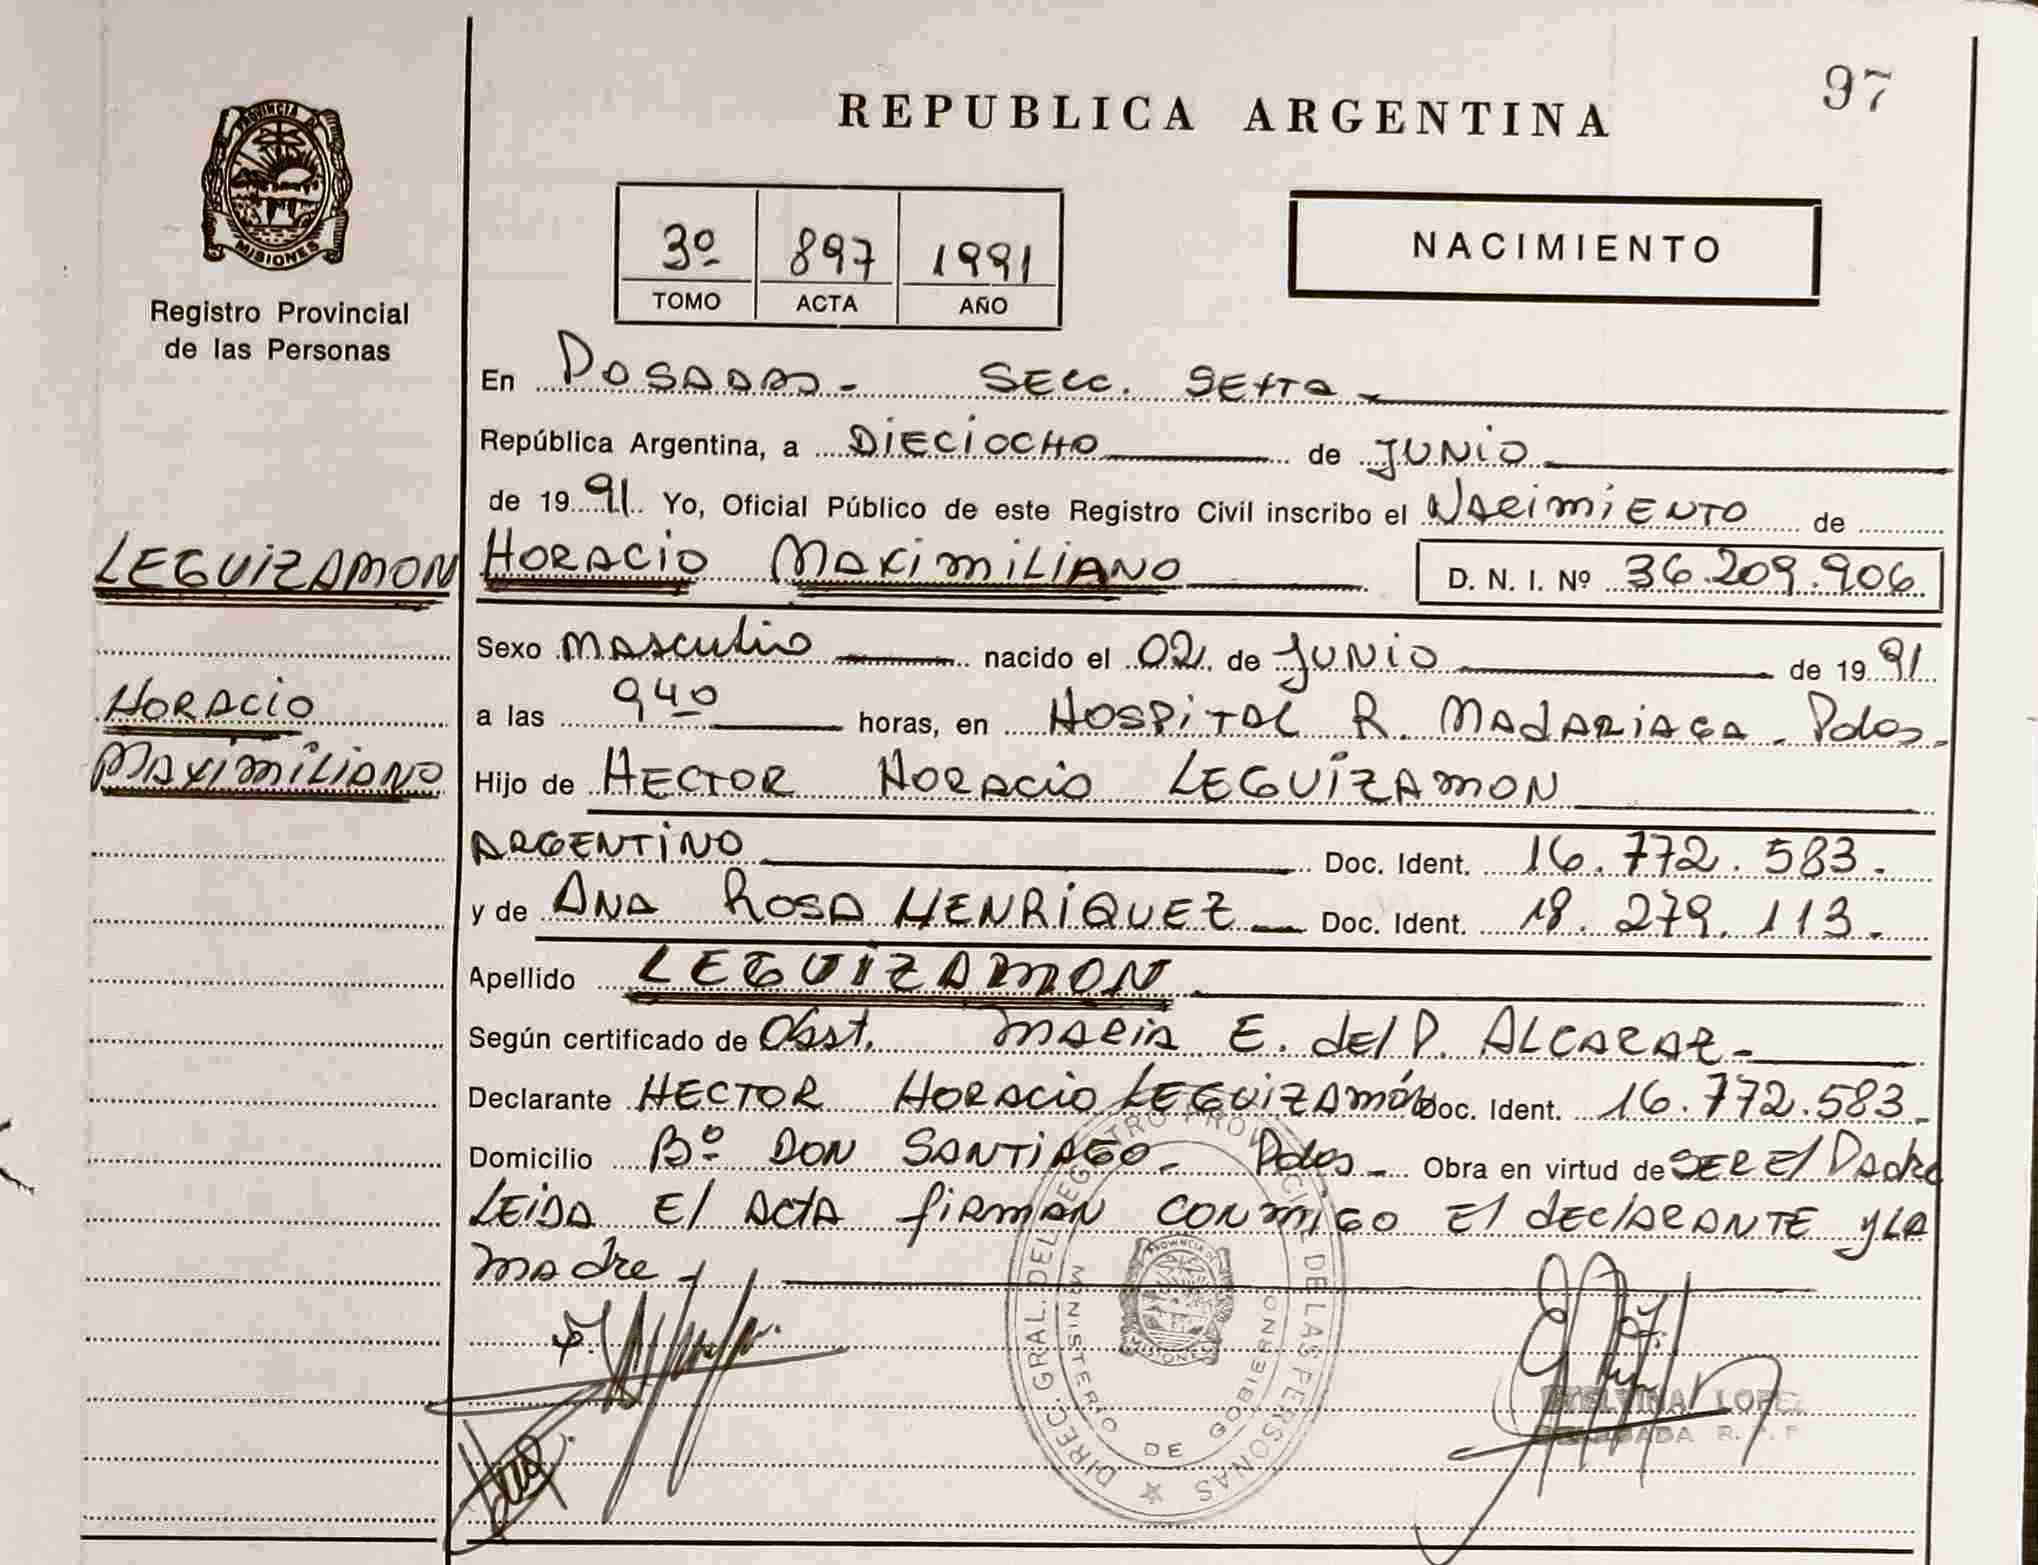 97
REPUBLICA ARGENTINA
PROVINCIA D
MISIONES
Registro Provincial
de las Personas
3º 897 1991
TOMO ACTA AÑO
NACIMIENTO
En POSADAS - SECC. SEXTA -
República Argentina, a DIECIOCHO de JUNIO
de 1991 Yo, Oficial Público de este Registro Civil inscribo el NACIMIENTO de
LEGUIZAMON HORACIO MAXIMILIANO D. N. I. Nº 36.209.906
Sexo MASCULIO nacido el 02 de JUNIO de 1991
HORACIO a las 940 horas, en HOSPITAL R. MADARIAGA - Pdas -
MAXIMILIANO Hijo de HECTOR HORACIO LEGUIZAMON
ARGENTINO Doc. Ident. 16.772.583.
y de ANA ROSA HENRIQUEZ Doc. Ident. 18.279.113.
Apellido LEGUIZAMON
Según certificado de Obst. MARIA E. del P. ALCARAZ -
Declarante HECTOR HORACIO LEGUIZAMÓN Doc. Ident. 16.772.583.
Domicilio Bº DON SANTIAGO - Pdas - Obra en virtud de SER El Padre
LEIDA El ACTA FIRMAN CONMIGO El dEClARANTE y LA
MAdre
DIREC. GRAL. DEL REGISTRO PROVINCIAL DE LAS PERSONAS
MINISTERIO DE GOBIERNO
MISIONES
LOPEZ
R. P. P